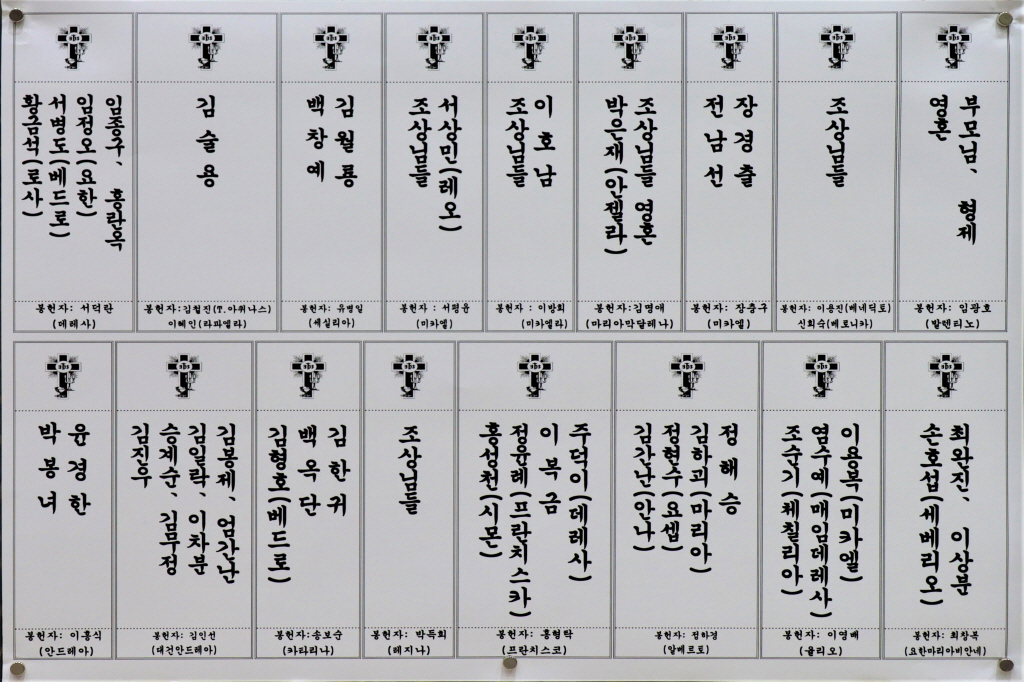 임종구、 홍란옥
임정오(요한)
서병도(베드로)
황금석(로사)
봉헌자: 서덕란
(데레사)
김술용
봉헌자:김철진(T.아퀴나스)
이혜인(라파엘라)
김월룡
백창예
봉헌자: 유병일
(세실리아)
서상민(레오)
조상님들
봉헌자: 서평윤
(미카엘)
이호남
조상님들
봉헌자: 이방희
(미카엘라)
조상님들 영혼
박은재(안젤라)
봉헌자:김명애
(마리아막달레나)
장경출
전남선
봉헌자: 장춘구
(미카엘)
조상님들
봉헌자: 이용진(베네딕토)
신희숙(베로니카)
부모님、 형제
영혼
봉헌자: 임광호
(발렌티노)
윤경한
박봉녀
봉헌자: 이홍식
(안드레아)
김봉제、 엄간난
김일락、 이차분
승계순、 김무정
김진우
봉헌자: 김인선
(대건안드레아)
김한귀
백옥단
김형호(베드로)
봉헌자:송보순
(카타리나)
조상님들
봉헌자: 박득희
(레지나)
주덕이(데레사)
이복금
정윤례(프란치스카)
홍성천(시몬)
봉헌자: 홍형탁
(프란치스코)
정해승
김하괴(마리아)
정현수(요셉)
김간난(안나)
봉헌자: 정하경
(알베르토)
이용복(미카엘)
염수예(매임데레사)
조순기(체칠리아)
봉헌자: 이영배
(율리오)
최완진、 이상분
손호섭(세베리오)
봉헌자: 최창목
(요한마리아비안네)